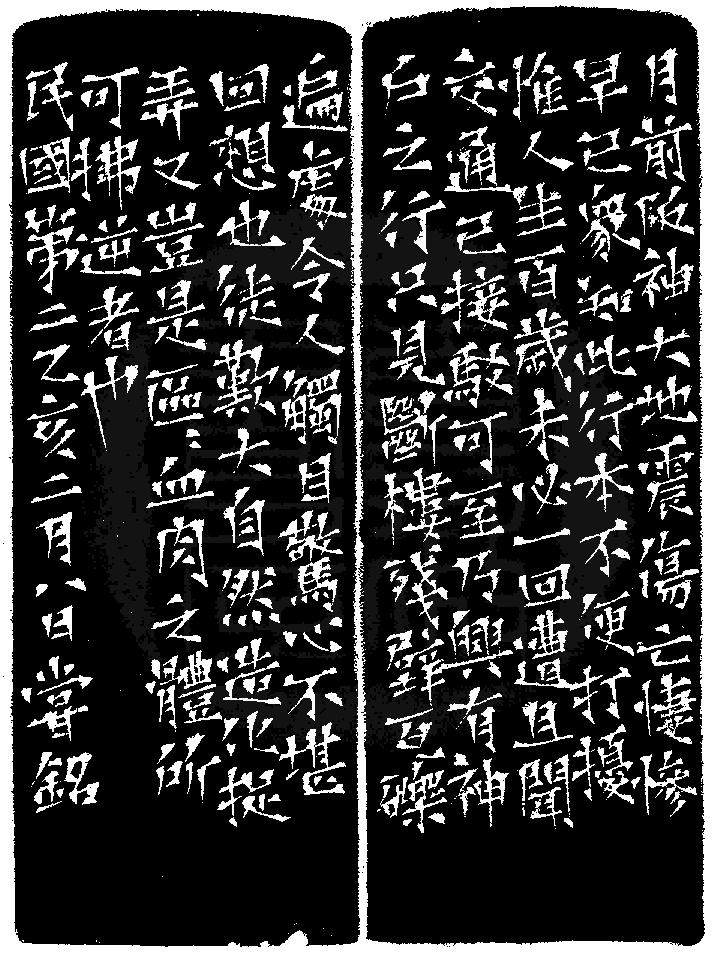 月前阪神大地震傷亡悽慘
早已衆知此行本不便打擾
惟人生百歲未必一回遭且聞
交通已接駁可至乃興有神
戶之行只見斷樓殘壁瓦礫
遍處令人觸目驚心不堪
回想也徒歎大自然造化捉
弄又豈是區〻血肉之體所
可拂逆者也
民國第二乙亥二月八日嘗銘